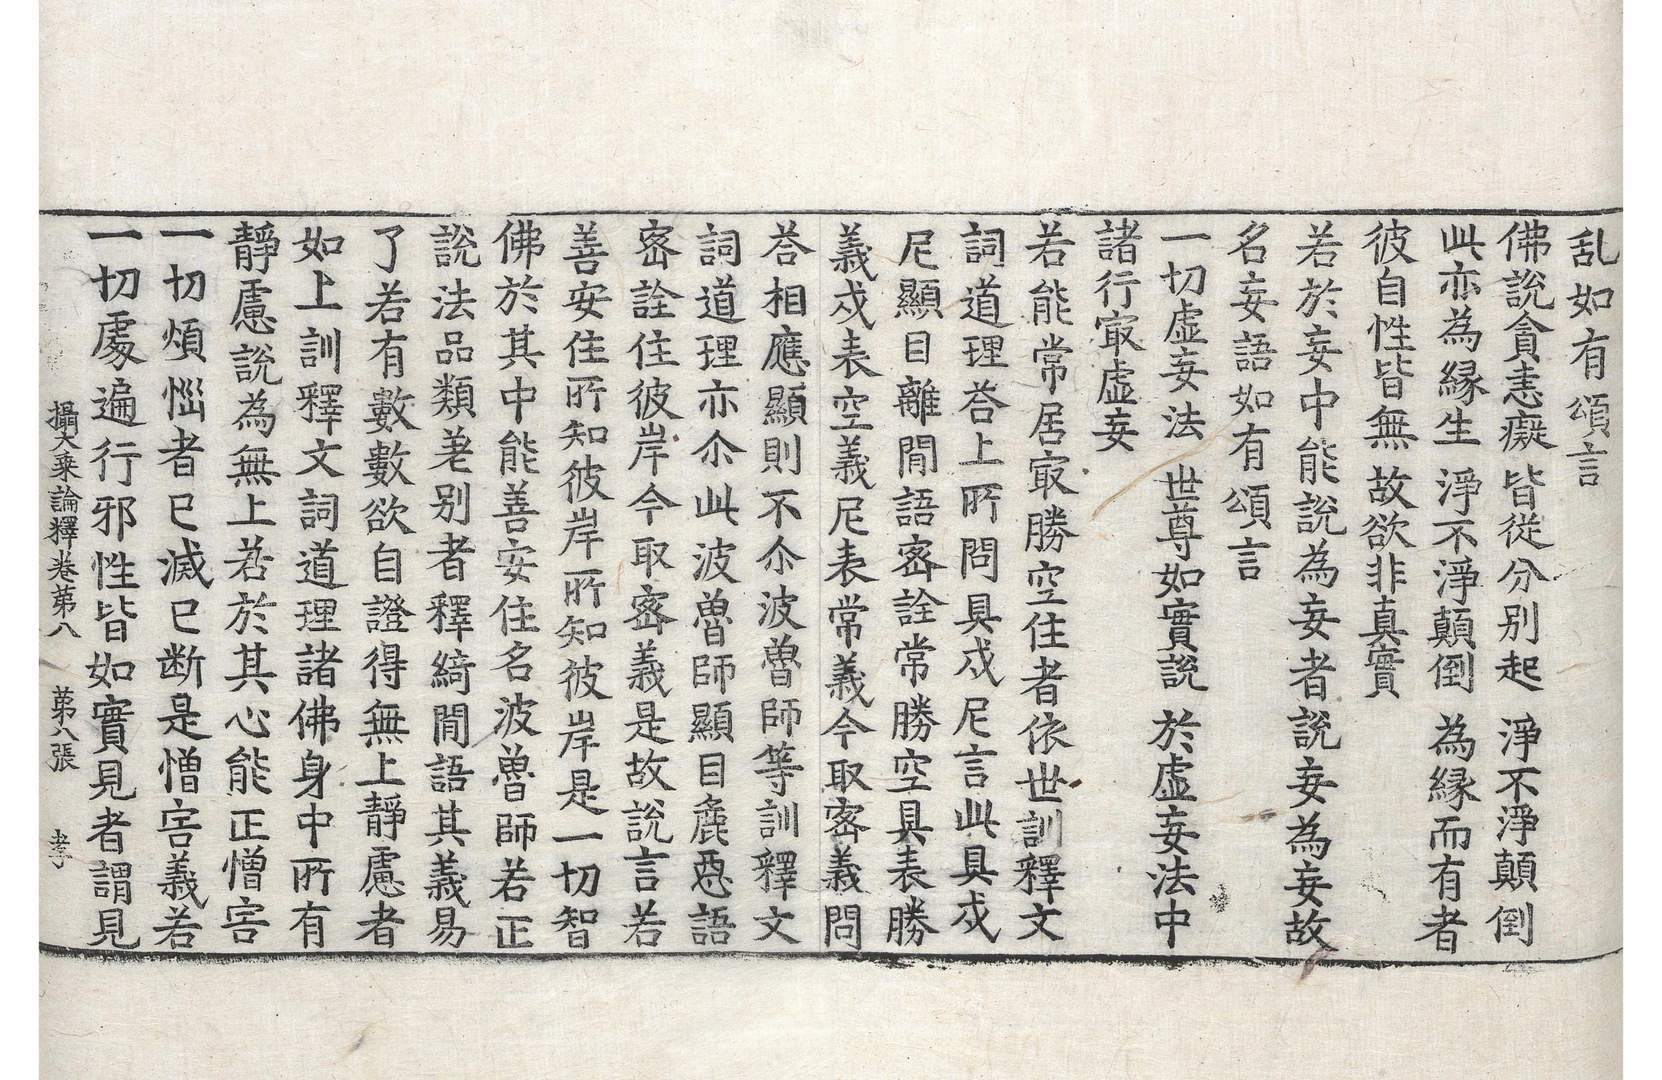 乱如有頌言
佛說貪恚癡皆從分別起淨不淨顛倒
此亦為緣生淨不淨顛倒為緣而有者
彼自性皆無故欲非真實
若於妄中能說為妄者說妄為妄故
名妄語如有頌言
一切虛妄法世尊如實說於虛妄法中
諸行㝡虛妄
若能常居㝡勝空住者依世訓釋文
詞道理荅上所問具戍尼言此具戍
尼顯目離間語密詮常勝空具表勝
義戍表空義尼表常義今取密義問
荅相應顯則不尒波魯師等訓釋文
詞道理亦尒此波魯師顯目麁惡語
密詮住彼岸今取密義是故說言若
善安住所知彼岸所知彼岸是一切智
佛於其中能善安住名波魯師若正
說法品類差別者釋綺間語其義易
了若有數數欲自證得無上靜慮者
如上訓釋文詞道理諸佛身中所有
靜慮說為無上若於其心能正憎害
一切煩惱者已滅已断是憎害義若
一切處遍行邪性皆如實見者謂見
攝大乘論釋卷第八 第八張 孝